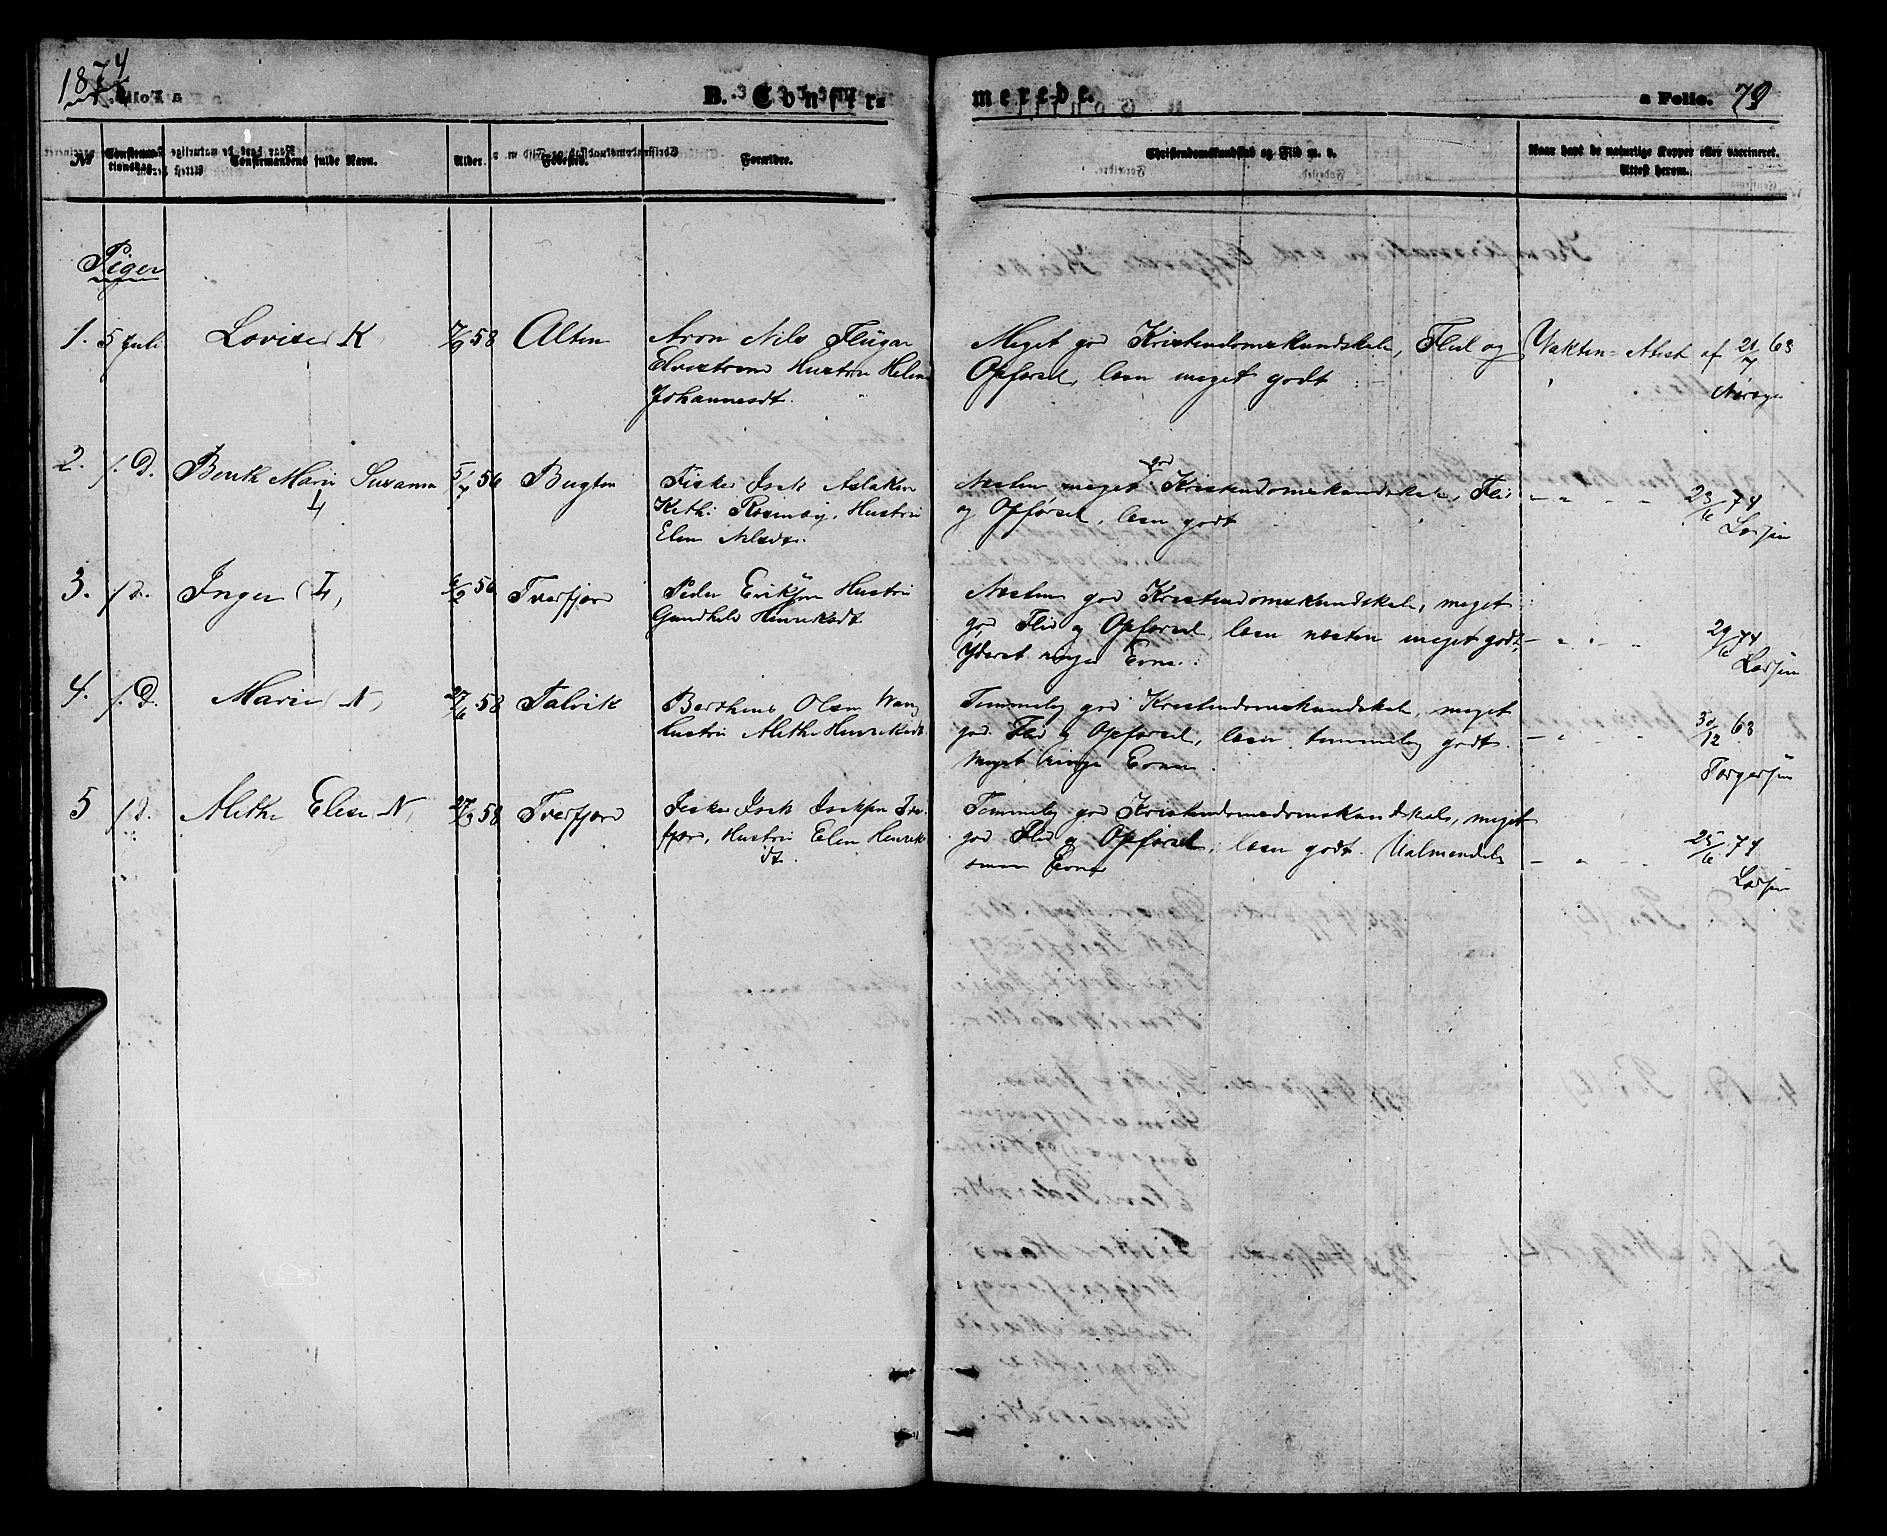 1874
B. Confir=
merede.
a Folio. 79
No
Confirma-
tionsdag.
Confirmandens fulde Navn.
Alder.
Fødested.
Forældre.
Christendomskundskab og Flid m. v.
Naar havt de naturlige Kopper eller vaccineret.
Attest herom.
Piger
1. 5 Juli Lovise K 58 Alten
Aron Nils
Hustru Helene
Johannesdt.
Meget god Kristendomskundskab, Flid og
Opførsel, læser meget godt
Vakcin= Attest af 21/7 63
2. f. D. Berith Marie Susanna L 5/7 56 Bugten
Fisker Isak Aslaksen
Hustru
Elen Nilsdt.
Næsten meget god Kristendomskundskab, Flid
og Opførsel, læser godt
23/6 74
Larsen
3. f. D. Inger L, 56 Tverfjor
Peder Eriksen Hustru
Gundhild Henriksdt
Næsten god Kristendomskundskab, meget
god Flid og Opførsel, læser næsten meget godt,
Yderst ringe Evne.
29/6 74
Larsen
4. f. D. Marie N, 27/6 58 Talvik
Berthinus Olsen Wang
Hustru Alethe Henriksdt
Temmelig god Kristendomskundskab, meget
god Flid og Opførsel, læser temmelig godt.
Meget ringe Evner.
30/12 63
Torgersen
5 f. D. Alethe Elen N, 27/3 58 Tverfjord
Fisker Isak Isaksen Tver-
fjor, Hustru Elen Henriks
dt.
Temmelig god Kristendomskundskab, meget
god Flid og Opførsel, læser godt. Ualmindelig
smaa Evner
25/6 74
Larsen